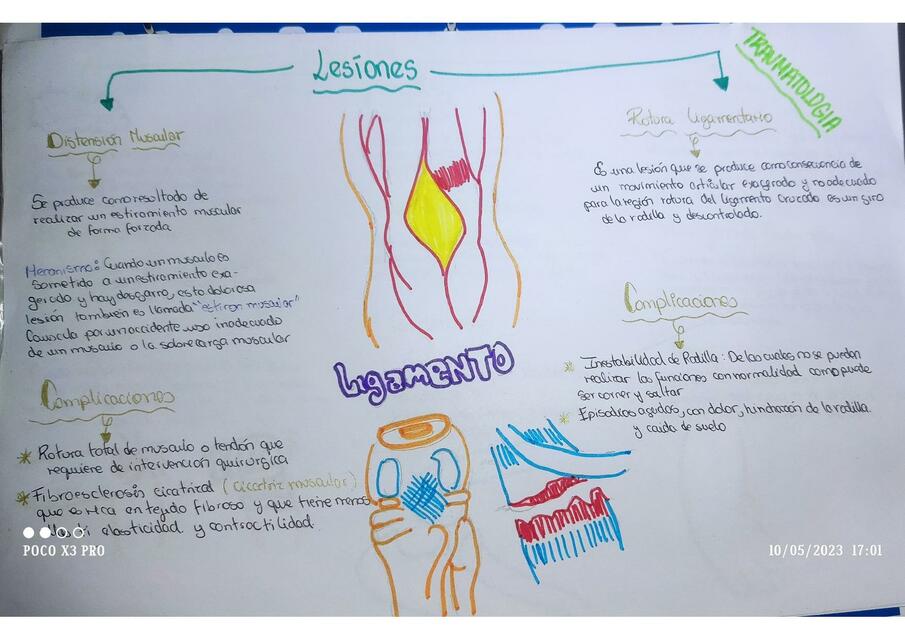 TRAUMATOLOGIA
Lesiones
Distensión Muscular
Se produce como resultado de
realizar un estiramiento muscular
de forma forzada
Mecanismo: Cuando un musculo es
sometido a un estiramiento exa-
gerado y hay desgarro, esta dolorosa
lesión tambien es llamada "estiron muscular"
por un accidente uso inadecuado
de un musculo o la sobrecarga muscular
Complicaciones
* Rotura total de musculo o tendón que
requiere de intervención quirurgica
* Fibroesclerosis cicatrizal (cicatriz muscular)
que es rica en tejido fibroso y que tiene menos
elasticidad y contractilidad.
LigaMENTO
Rotura Ligamentario
Es una lesión que se produce como consecuencia de
un movimiento articular exagerado y no adecuado
para la región rotura del ligamento cruzado es un giro
de la rodilla y descontrolado.
Complicaciones
* Inestabilidad de Rodilla: De las cuales no se pueden
realizar las funciones con normalidad como puede
ser correr y saltar
* Episodios agudos, con dolor, hinchazón de la rodilla
y caida de suelo
POCO X3 PRO
10/05/2023 17:01